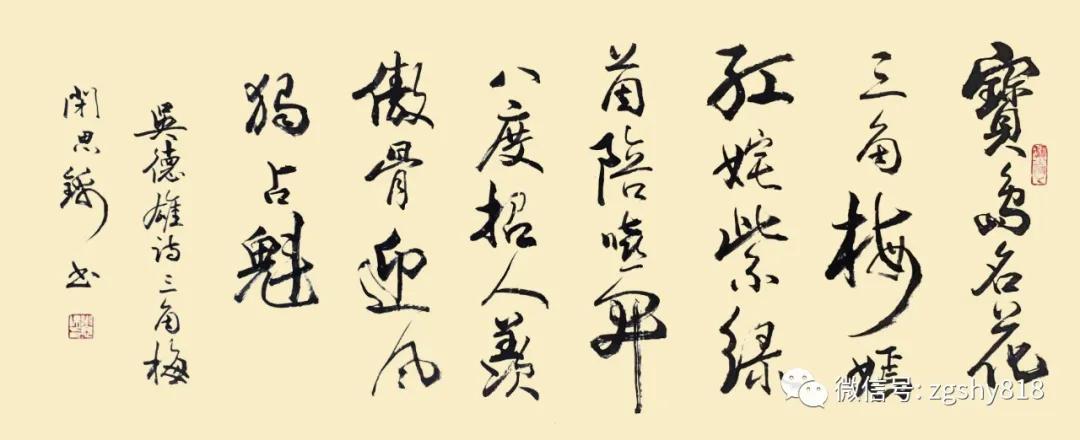 寶島名花
三角梅嫣
紅姹紫綠
茵陪曉開
八度招人羨
傲骨迎風
獨占魁
吳德雄詩三角梅
思書
微信号: zgshy818